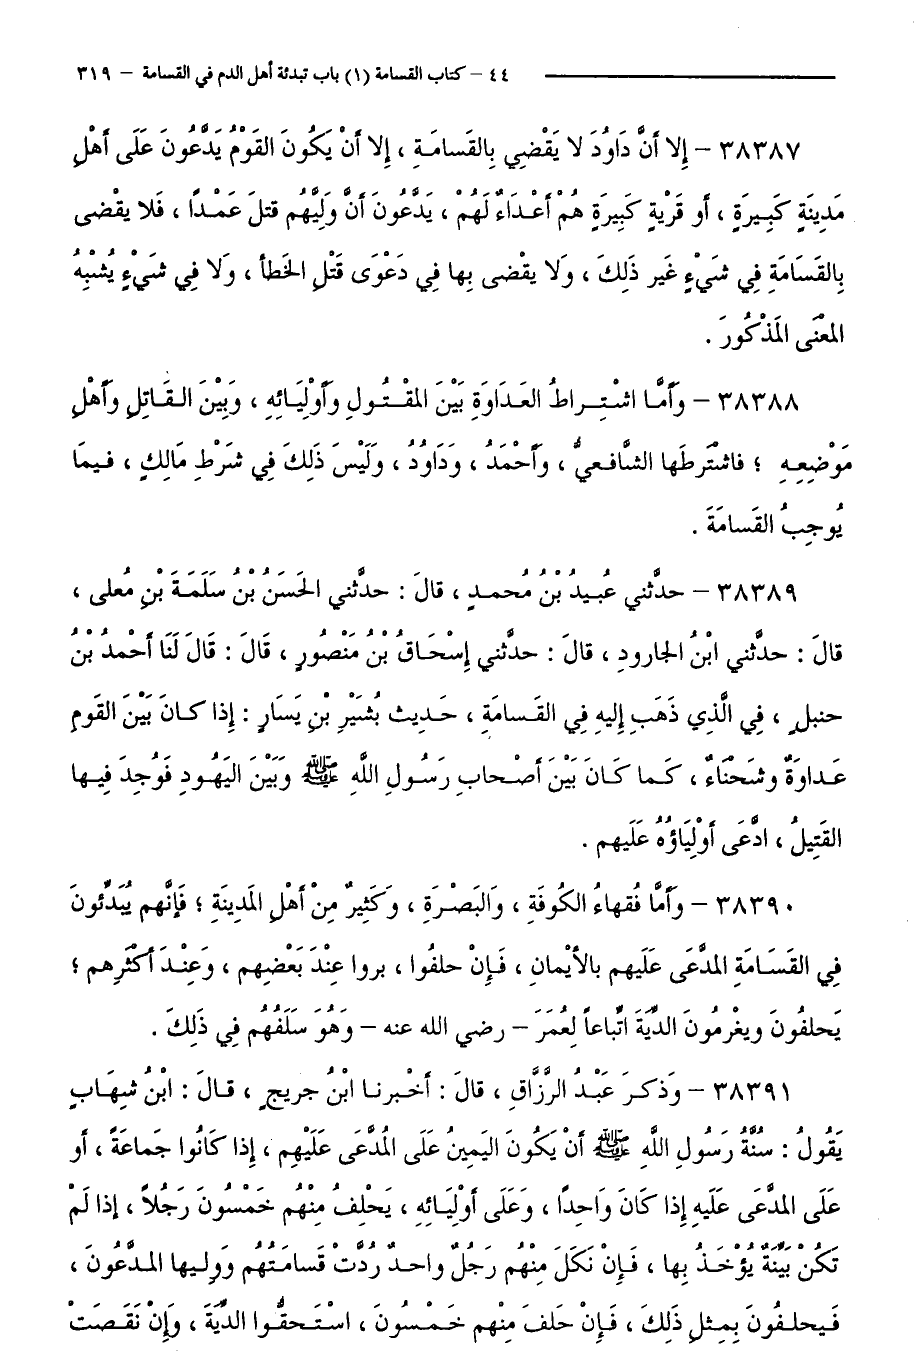 ٤٤ – كتاب القسامة (١) باب تبدئة أهل الدم في القسامة – ٣١٩
٣٨٣٨٧ – إِلا أنَّ دَاوُدَ لا يَقْضِي بِالقَسامَةِ ، إِلا أنْ يَكُونَ القَوْمُ يَدَّعُونَ عَلَى أهْلِ
مَدِينَةٍ كَبِيرَةٍ ، أو قَرْيَةٍ كَبِيرَةٍ هُمْ أعْدَاءٌ لَهُمْ ، يَدَّعُونَ أنَّ وَلِيَّهُم قتلَ عَمْداً ، فَلا يقْضى
بِالقَسَامَةِ فِي شَيْءٍ غَير ذَلِكَ ، وَلا يقْضى بِها فِي دَعْوَى قَتْلِ الخَطأ ، وَلا فِي شَيْءٍ يُشْبِهُ
المعْنَى المَذْكُورَ .
٣٨٣٨٨ – وَأَمَّا اشْتِراطُ العَدَاوَةِ بَيْنَ المَقْتُولِ وأوْلِيَائِهِ ، وَبَيْنَ القَاتِلِ وأهْلِ
مَوْضِعِهِ ؛ فاشْتَرطَها الشَّافعيُّ ، وأحْمَدُ ، وَدَاوُدُ ، وَلَيْسَ ذَلِكَ فِي شَرْطِ مَالِكٍ ، فيمَا
يُوجِبُ القَسامَةَ .
٣٨٣٨٩ – حدَّثني عُبيدُ بْنُ مُحمدٍ ، قالَ : حدَّثني الحَسَنُ بْنُ سَلَمَةَ بْنِ مُعلى ،
قالَ : حدَّثني ابْنُ الجارودِ ، قالَ : حدَّثني إِسْحَاقُ بْنُ مَنْصُورٍ ، قَالَ : قَالَ لَنَا أحْمدُ بْنُ
حنبلٍ ، فِي الَّذِي ذَهَب إِليهِ فِي القَسامَةِ ، حَدِيث بُشَيْرِ بْنِ يَسَارٍ : إِذا كانَ بَيْنَ القَومِ
عَداوَةٌ وشَحْنَاءٌ ، كَما كَانَ بَيْنَ أصْحابِ رَسُولِ اللَّهِ ﷺ وَبَيْنَ اليَهُودِ فَوُجِدَ فِيها
القَتِيلُ ، ادَّعَى أوْلِيَاؤُهُ عَلَيهِم .
٣٨٣٩٠ – وَأَمَّا فُقهاءُ الكُوفَةِ ، وَالبَصْرَةِ ، وَكَثِيرٌ مِنْ أهْلِ المَدِينَةِ ؛ فَإِنَّهم يُبَدِّئونَ
فِي القَسَامَةِ المدَّعَى عَلَيهِم بالأيْمانِ ، فَإِنْ حلفُوا ، بروا عِنْدَ بَعْضِهِم ، وَعِنْدَ أكْثَرِهِم ؛
يَحلفُونَ ويغْرمُونَ الدِّيَةَ اتِّباعاً لِعُمَرَ – رضي الله عنه – وَهُوَ سَلَفُهُم فِي ذَلِكَ .
٣٨٣٩١ – وَذَكرَ عَبْدُ الرَّزَّاقِ ، قالَ : أخْبرنا ابْنُ جريجٍ ، قالَ : ابْنُ شِهَابٍ
يَقُولُ : سُنَّةُ رَسُولِ اللَّهِ ﷺ أنْ يَكُونَ اليَمِينُ عَلَى المُدَّعَى عَلَيْهِم ، إِذا كَانُوا جَماعَةً ، أو
عَلَى المدَّعَى عَلَيهِ إِذا كانَ وَاحِداً ، وَعَلَى أوْلِيَائِهِ ، يَحْلِفُ مِنْهُم خَمْسُونَ رَجُلاً ، إِذا لَمْ
تَكُنْ بَيِّنَةٌ يُؤْخَذُ بِها ، فَإِنْ نَكَلَ مِنْهُم رَجُلٌ واحدٌ رُدَّتْ قَسامَتُهُم وَوَلِيها المدَّعُونَ ،
فَيحلفُونَ بِمِثلِ ذَلِكَ ، فَإِنْ حَلفَ مِنْهم خَمْسُونَ ، اسْتَحقُّوا الدِّيَةَ ، وَإِنْ نَقَصَتْ